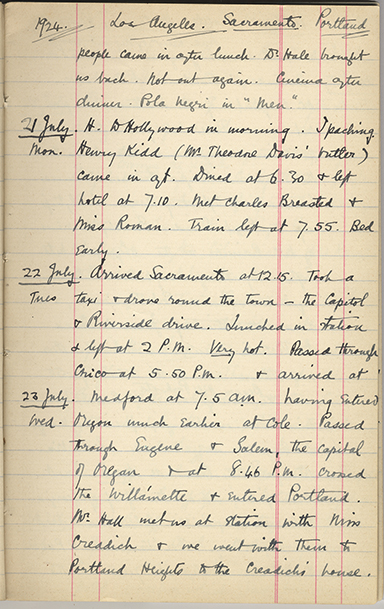 1924. Los Angeles. Sacramento. Portland
people came in after lunch. Dr. Hale brought
us back. Not out again. Cinema after
dinner. Pola Negri in "Men."
21 July. H. to Hollywood in morning. I packing
Mon. Henry Kidd (Mr. Theodore Davis' butler)
came in aft. Dined at 6.30 & left
hotel at 7.10. Met Charles Breasted &
Miss Roman. Train left at 7.55. Bed
Early.
22 July. Arrived Sacramento at 12.15. Took a
Tues taxi & drove round the town - the Capitol
& Riverside drive. Lunched in station
& left at 2 P.M. Very hot. Passed through
Chico at 5.50 P.M. & arrived at
23 July. Medford at 7.5 a.m. having entered
Wed. Oregon much Earlier at Cole. Passed
through Eugene & Salem, the capital
of Oregan & at 8.46 P.M. crossed
the Willamette & entered Portland.
Mr. Hall met us at station with Miss
Creadich & we went with them to
Portland Heights to the Creadichs' house.